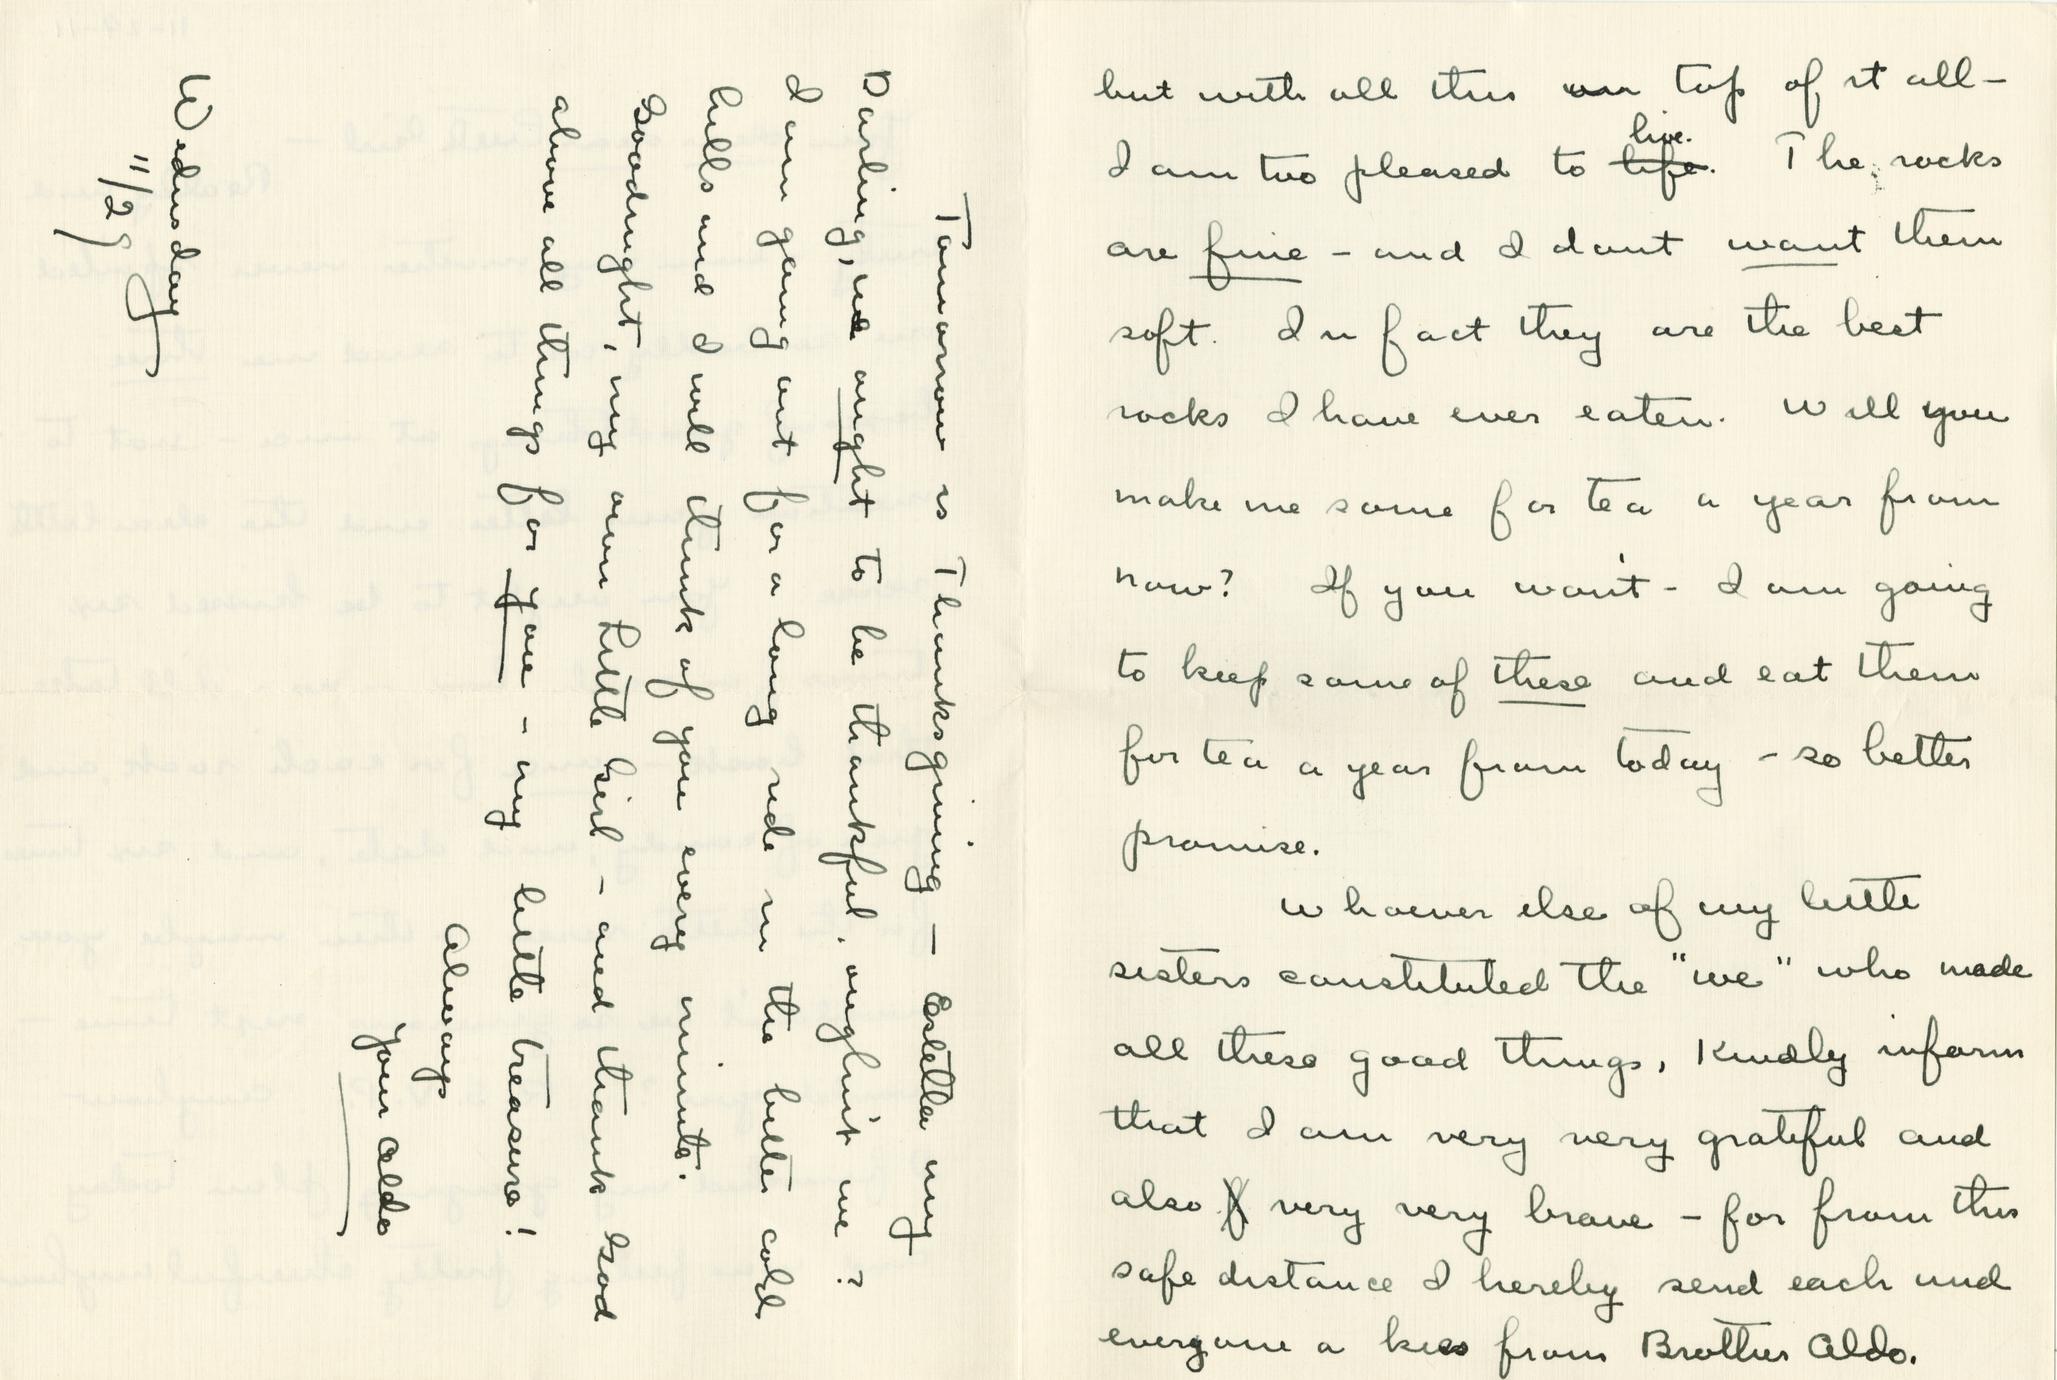 but with all this on top of it all—
live.
I am too pleased to life. The rocks
are fine – and I dont want them
soft. In fact they are the best
rocks I have ever eaten. Will you
make me some for tea a year from
now? If you won't – I am going
to keep some of these and eat them
for tea a year from today – so better
promise.
Whoever else of my little
sisters constituted the "we" who made
all these good things, Kindly inform
that I am very very grateful and
also very very brave – for from this
safe distance I hereby send each and
everyone a kiss from Brother Aldo.
Tomorrow is Thanksgiving — Estella my
Darling, we ought to be thankful, oughn't we?
I am going out for a long ride in the bitter cold
hills and I will think of you every minute.
Goodnight, my own Little Girl – and thank God
above all things for you – my little treasure!
Always
Your Aldo
Wednsday
11/29